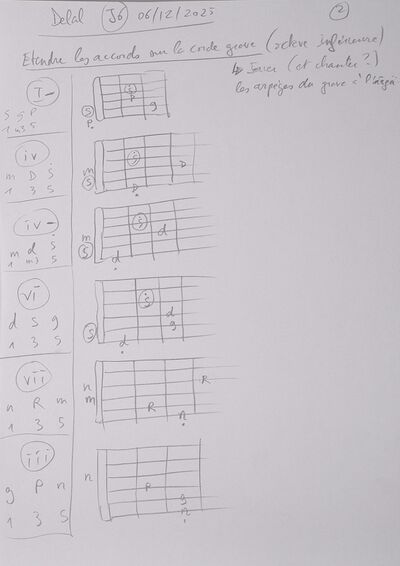 Delal J6 06/12/2025 2
Etendre les accords sur la corde grave (octave inférieure)
↳ Jouer (et chanter?)
les arpèges du grave à l'aigu
I-
S S P
1 m3 5
S P S P g
iv
m D S
1 3 5
m S S D D
iv-
m d S
1 m3 5
m S S d d
vi
d S g
1 3 5
S S d g d
vii
n R m
1 3 5
n m R R n
iii
g P n
1 3 5
n P g n